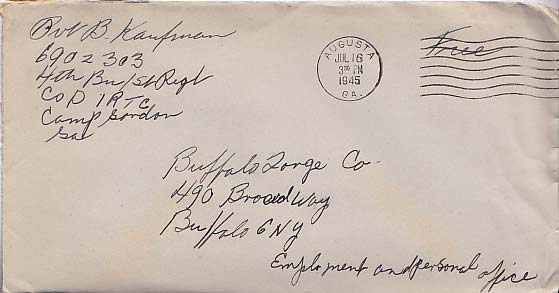 Pvt B. Kaufman
6902 303
4th Bn/1st Regt
Co D 1RTC
Camp Gordon
Ga
AUGUSTA
JUL 16
3 30 PM
1945
GA.
Free
Buffalo Forge Co.
490 Broadway
Buffalo 6 NY
Employment and personal office